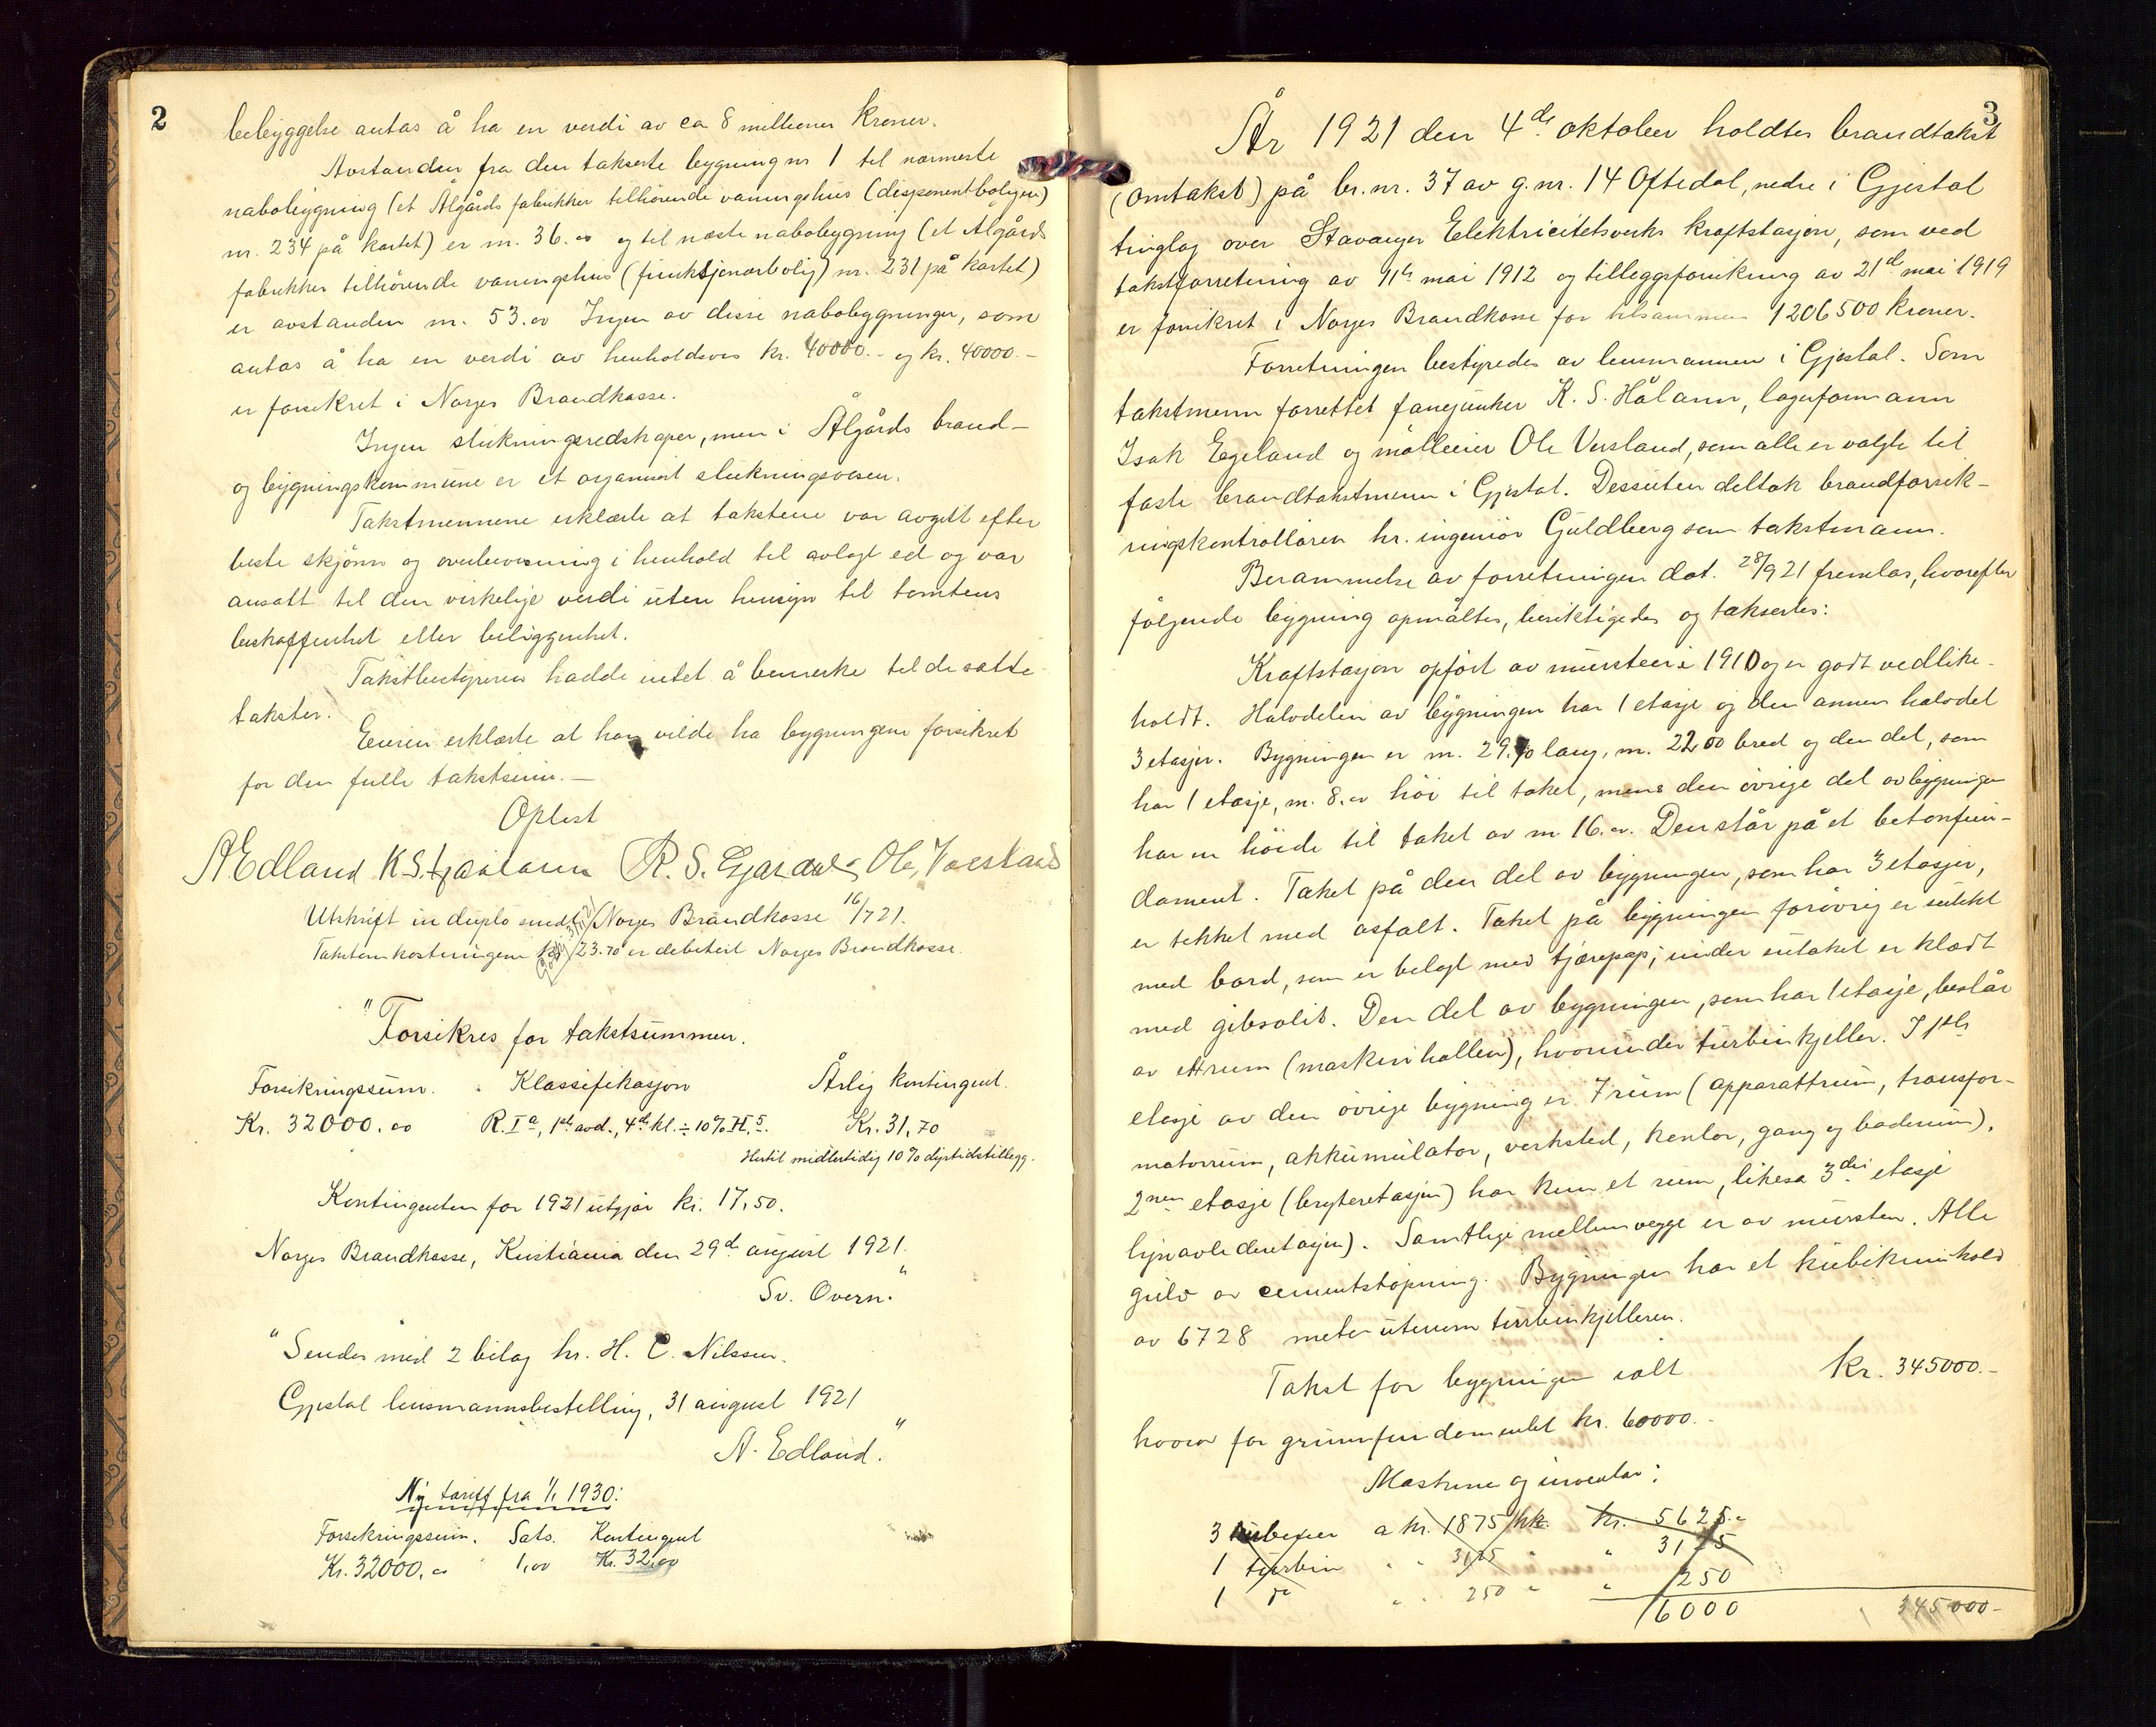 2
bebyggelse antas å ha en verdi av ca 8 millioner kroner.
Avstanden fra den takserte bygning nr 1 til nærmeste
nabobygning (et Ålgårds fabrikker tilhörende våningshus (disponentboligen)
nr. 234 på kartet) er m. 36.00 og til næste nabobygning (et Ålgårds
fabrikker tilhörende våningshus (funksjonærbolig) nr. 231 på kartet)
er avstanden m. 53.00 Ingen av disse nabobygninger, som
antas å ha en verdi av henholdsvis kr. 40000.- og kr. 40000.-
er forsikret i Norges Brandkasse.
Ingen slukningsredskaper, men i Ålgårds brand-
og bygningskommune er et organisert slukningsvesen.
Takstmennene erklærte at takstene var avgitt efter
beste skjönn og overbevisning i henhold til avlagt ed og var
ansatt til den virkelige verdi uten hensyn til tomtens
beskaffenhet eller beliggenhet.
Takstbestyreren hadde intet å bemerke til de satte
takster.
Eieren erklærte at han vilde ha bygningene forsikret
for den fulle takstsum.-
Oplest
A Edland K S. Haaland R. S. Gjesdal Ole Vaestad
Utskrift in duplo sendt Norges Brandkasse 16/7 21.
Takstomkostningene kr 23.70 er debitert Norges Brandkasse.
"Forsikres for takstsummen.
Forsikringssum. Klassifikasjon Årlig kontingent.
Kr. 32000.00 R. Ia, 1ste avd., 4de kl. ÷ 10% H. 5. Kr. 31,70
Hertil midlertidig 10% dyrtidstillegg.
Kontingenten for 1921 utgjör kr. 17,50.
Norges Brandkasse, Kristiania den 29de august 1921.
Sv. Overn."
"Sendes med 2 bilag hr. H. C. Nilssen.
Gjestal lensmannsbestilling, 31 august 1921
A. Edland."
Ny tariff fra 1/1 1930:
Forsikringssum. Sats. Kontingent
Kr. 32000.00 1,00 Kr. 32,00
3
År 1921 den 4de oktober holdtes brandtakst
(omtakst) på br.nr. 37 av g.nr. 14 Oftedal, nedre i Gjestal
tinglag over Stavanger Elektricitetsverks kraftstasjon, som ved
takstforretning av 11te mai 1912 og tilleggsforsikring av 21de mai 1919
er forsikret i Norges Brandkasse for tilsammen 1206500 kroner.
Forretningen bestyredes av lensmannen i Gjestal. Som
takstmenn forrettet fanejunker K. S. Håland, lagsformann
Isak Egeland og mölleeier Ole Versland, som alle er valgte til
faste brandtakstmenn i Gjestal. Dessuten deltok brandforsik-
ringskontrollören hr. ingeniör Guldberg som takstmann.
Berammelse av forretningen dat. 28/9 21 fremlas, hvorefter
fölgende bygning opmåltes, besiktigedes og taksertes:
Kraftstasjon opfört av mursten i 1910 og er godt vedlike-
holdt. Halvdelen av bygningen har 1 etasje og den annen halvdel
3 etasjer. Bygningen er m. 29.70 lang, m. 22,00 bred og den del, som
har 1 etasje, m. 8.00 höi til taket, mens den övrige del av bygningen
har en höide til taket av m 16.00. Den står på et betonfun-
dament. Taket på den del av bygningen, som har 3 etasjer,
er tekket med asfalt. Taket på bygningen forövrig er tekket
med bord, som er belagt med tjærepap; under taket er klædt
med gibsolit. Den del av bygningen, som har 1 etasje, består
av et rum (maskinhallen), hvorunder turbinkjeller. I 1ste
etasje av den övrige bygning er 7 rum (apparatrum, transfor-
matorrum, akkumulator, verksted, kontor, gang og baderum).
2nen etasje (bryteretasjen) har kun et rum, likesa 3die etasje
lynavlederetasjen). Samtlige mellemvegge er av mursten. Alle
gulv av cementstöpning. Bygningen har et kubikinnhold
av 6728 meter utenom turbinkjelleren.
Takst for bygningen ialt kr. 345000.-
hvorav for grunnfundamentet kr. 60000.-
Maskine og inventar:
3 turbiner a kr. 1875 pr. stk. kr. 5625.-
1 turbin " " 3125 " " 3125
1 do " " 250 " " 250
6000 345000-